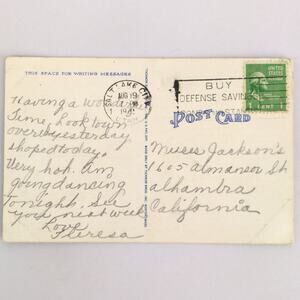 THIS SPACE FOR WRITING MESSAGES
Having a Wonderful
Time, Look town
over yesterday
shoped today.
Very hot. Am
going dancing
tonight. See
you next week
Love
Theresa
SALT LAKE CITY
AUG 19
PM
BUY
DEFENSE SAVINGS
UNITED STATES
1 CENT 1
POST CARD
Jackson's
1605 Almansor St
Alhambra
California